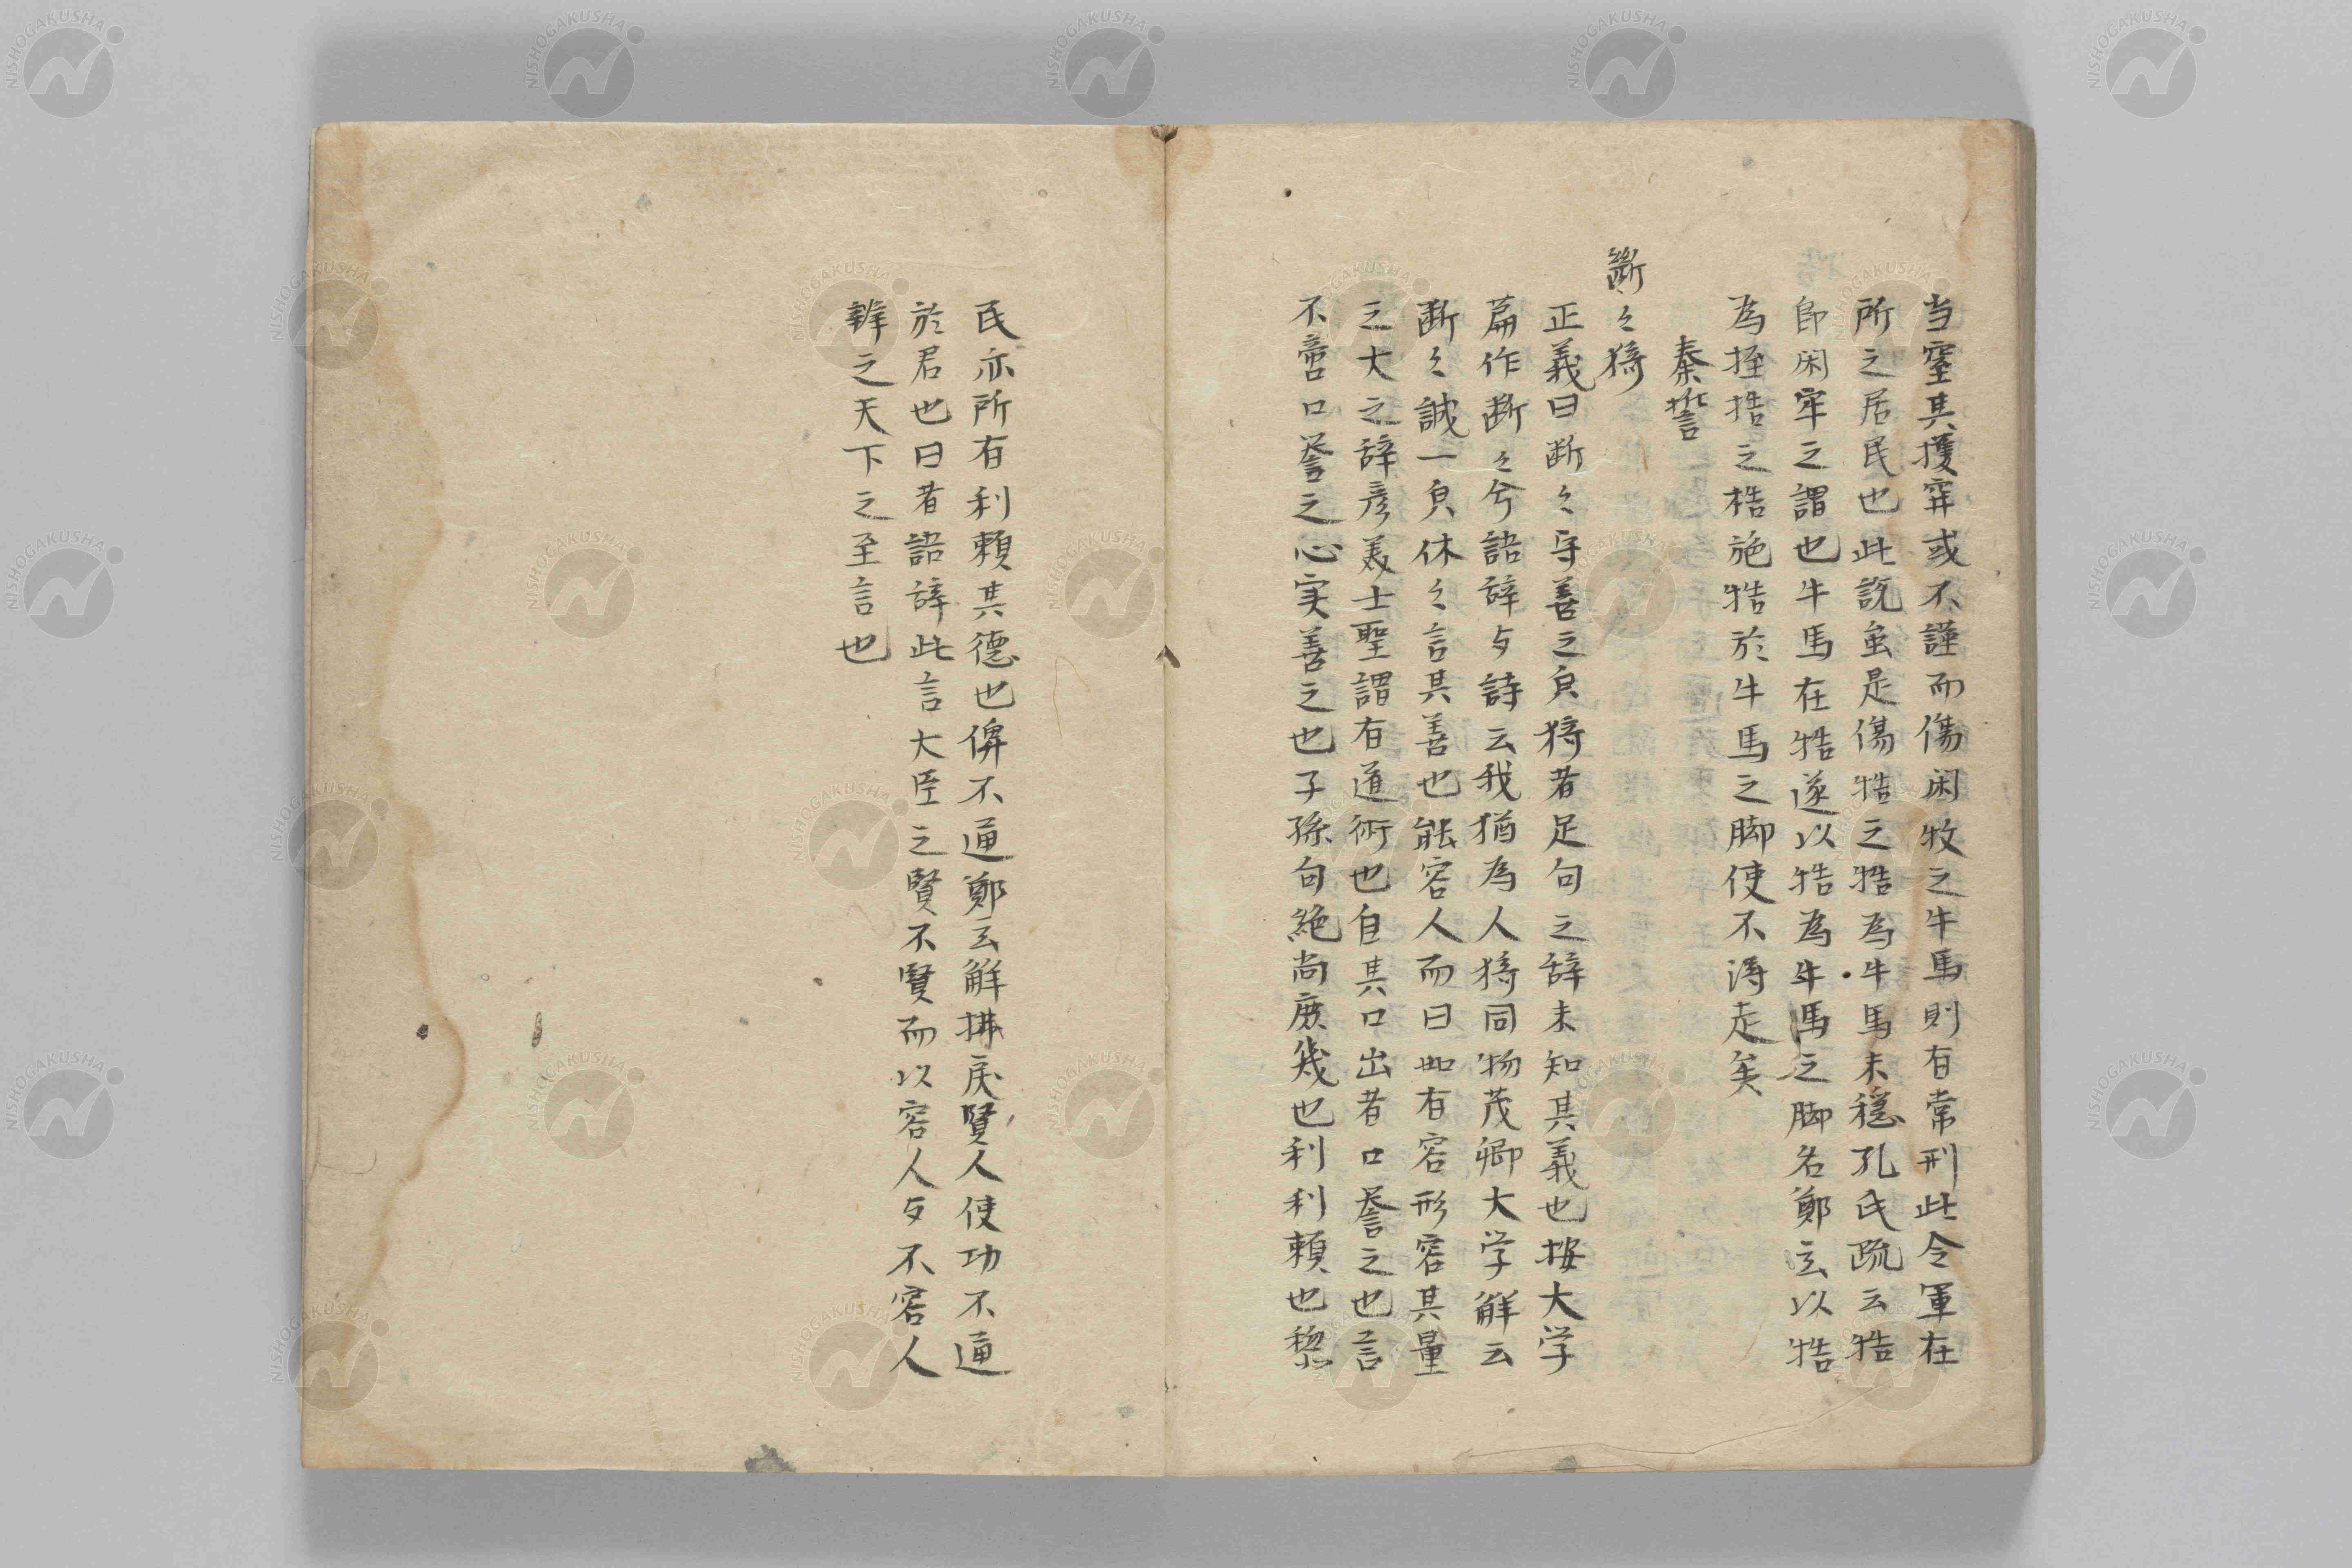 当窒其擭穽或不謹而傷閑牧之牛馬則有常刑此令軍在
所之居民也此説虽是傷牿之牿為牛馬未穏孔氏疏云牿
即閑牢之謂也牛馬在牿遂以牿為牛馬之脚名鄭玄以牿
為桎梏之梏施牿於牛馬之脚使不得走矣
秦誓
斷々猗
正義曰断々守善之皃猗者足句之辞未知其義也按大学
篇作断々兮語辞与詩云我猶為人猗同物茂卿大学解云
断々誠一皃休々言其善也能容人而曰如有容形容其量
之大之辞彦美士聖謂有道術也自其口出者口誉之也言
不啻口誉之心実善之也子孫句絶尚庶幾也利利頼也黎
民亦所有利頼其徳也俾不通鄭玄解拂戻賢人使功不通
於君也曰者語辞此言大臣之賢不賢而以容人与不容人
辨之天下之至言也
NISHOGAKUSHA